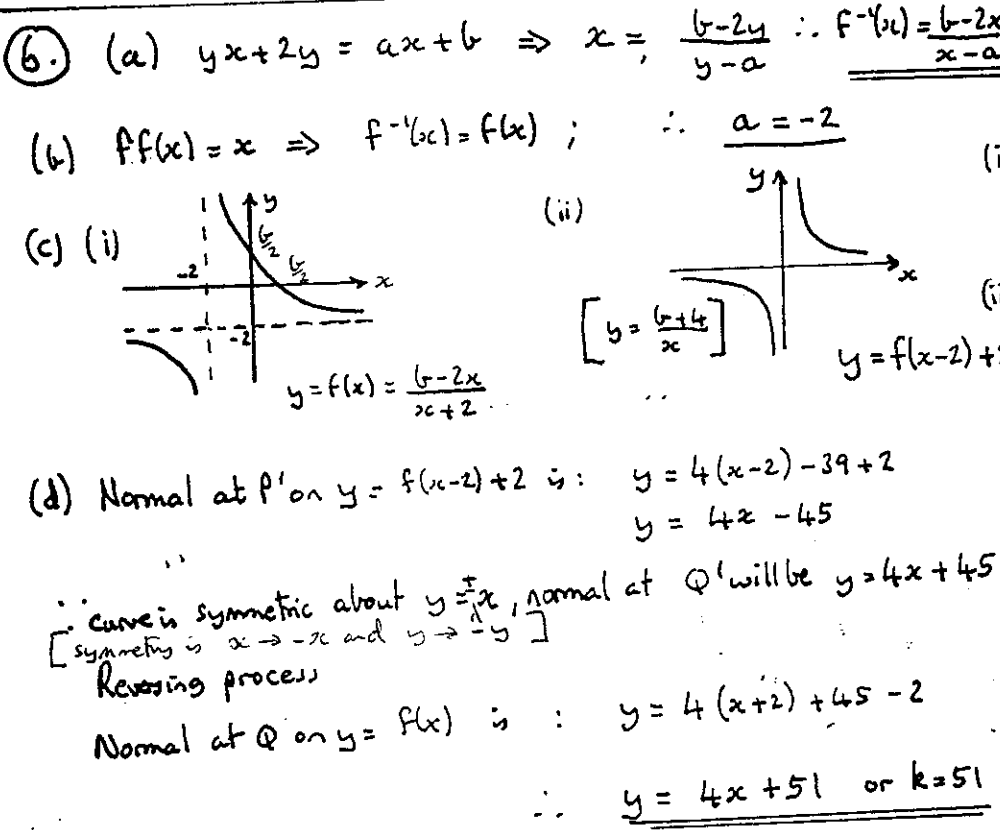 6. (a) yx+2y = ax+b ⇒ x = (b-2y)/(y-a) ∴ f⁻¹(x) = (b-2x)/(x-a)
(b) ff(x) = x ⇒ f⁻¹(x) = f(x) ; ∴ a = -2
(c) (i) y b/2 b/2 -2 x -2
y = f(x) = (b-2x)/(x+2)
(ii) y x
[y = (b+4)/x]
y = f(x-2) +
(d) Normal at P' on y = f(x-2)+2 is : y = 4(x-2) - 39 + 2
y = 4x - 45
∵ curve is symmetric about y = ±x, normal at Q' will be y = 4x + 45
[symmetry is x → -x and y → -y]
Reversing process
Normal at Q on y = f(x) is : y = 4(x+2) + 45 - 2
∴ y = 4x + 51 or k = 51